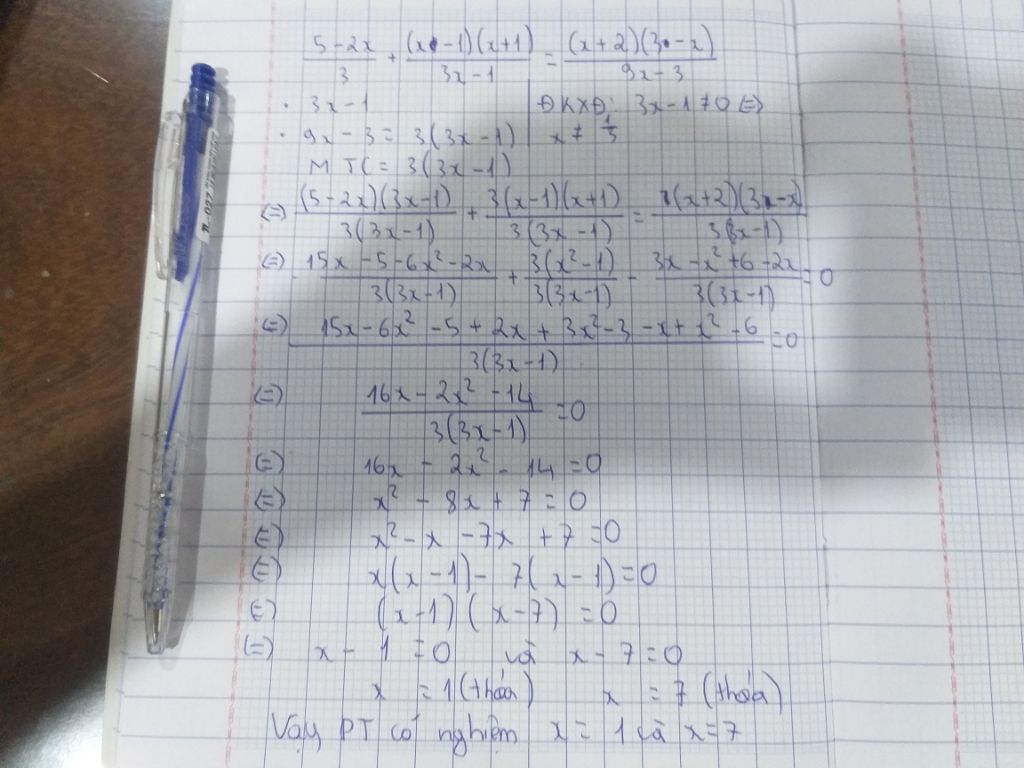 (5-2x)/3 + (x-1)(x+1)/(3x-1) = (x+2)(3-x)/(9x-3)
• 3x-1 | ĐKXĐ: 3x-1≠0 (=)
• 9x-3 = 3(3x-1) | x ≠ 1/3
MTC = 3(3x-1)
(=) (5-2x)(3x-1)/3(3x-1) + 3(x-1)(x+1)/3(3x-1) = (x+2)(3-x)/3(3x-1)
(=) 15x-5-6x²-2x/3(3x-1) + 3(x²-1)/3(3x-1) - 3x-x²+6-2x/3(3x-1) = 0
(=) 15x-6x²-5+2x+3x²-3-x+x²-6/3(3x-1) = 0
(=) 16x-2x²-14/3(3x-1) = 0
(=) 16x - 2x² - 14 = 0
(=) x² - 8x + 7 = 0
(=) x² - x - 7x + 7 = 0
(=) x(x-1) - 7(x-1) = 0
(=) (x-1)(x-7) = 0
(=) x - 1 = 0 và x - 7 = 0
x = 1 (thỏa) x = 7 (thỏa)
Vậy PT có nghiệm x = 1 và x = 7